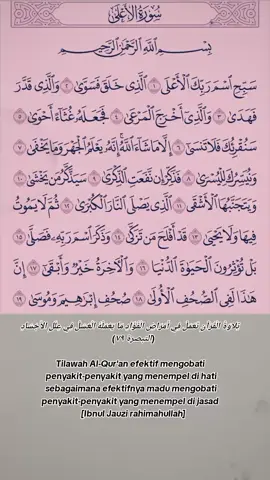 سُورَةُ الأَعْلَى
بِسْمِ اللَّهِ الرَّحْمَٰنِ الرَّحِيمِ
سَبِّحِ اسْمَ رَبِّكَ الْأَعْلَى ١ الَّذِي خَلَقَ فَسَوَّىٰ ٢ وَالَّذِي قَدَّرَ
فَهَدَىٰ ٣ وَالَّذِي أَخْرَجَ الْمَرْعَىٰ ٤ فَجَعَلَهُ غُثَاءً أَحْوَىٰ ٥
سَنُقْرِئُكَ فَلَا تَنسَىٰ ٦ إِلَّا مَا شَاءَ اللَّهُ إِنَّهُ يَعْلَمُ الْجَهْرَ وَمَا يَخْفَىٰ ٧
وَنُيَسِّرُكَ لِلْيُسْرَىٰ ٨ فَذَكِّرْ إِن نَّفَعَتِ الذِّكْرَىٰ ٩ سَيَذَّكَّرُ مَن يَخْشَىٰ ١٠
وَيَتَجَنَّبُهَا الْأَشْقَى ١١ الَّذِي يَصْلَى النَّارَ الْكُبْرَىٰ ١٢ ثُمَّ لَا يَمُوتُ
فِيهَا وَلَا يَحْيَىٰ ١٣ قَدْ أَفْلَحَ مَن تَزَكَّىٰ ١٤ وَذَكَرَ اسْمَ رَبِّهِ فَصَلَّىٰ ١٥
بَلْ تُؤْثِرُونَ الْحَيَاةَ الدُّنْيَا ١٦ وَالْآخِرَةُ خَيْرٌ وَأَبْقَىٰ ١٧ إِنَّ
هَٰذَا لَفِي الصُّحُفِ الْأُولَىٰ ١٨ صُحُفِ إِبْرَاهِيمَ وَمُوسَىٰ ١٩
تلاوة القرآن تعمل في أمراض الفؤاد ما يعمله العسل في علل الأجساد
(التبصرة ٧٩)
Tilawah Al-Qur'an efektif mengobati
penyakit-penyakit yang menempel di hati
sebagaimana efektifnya madu mengobati
penyakit-penyakit yang menempel di jasad
[Ibnul Jauzi rahimahullah]